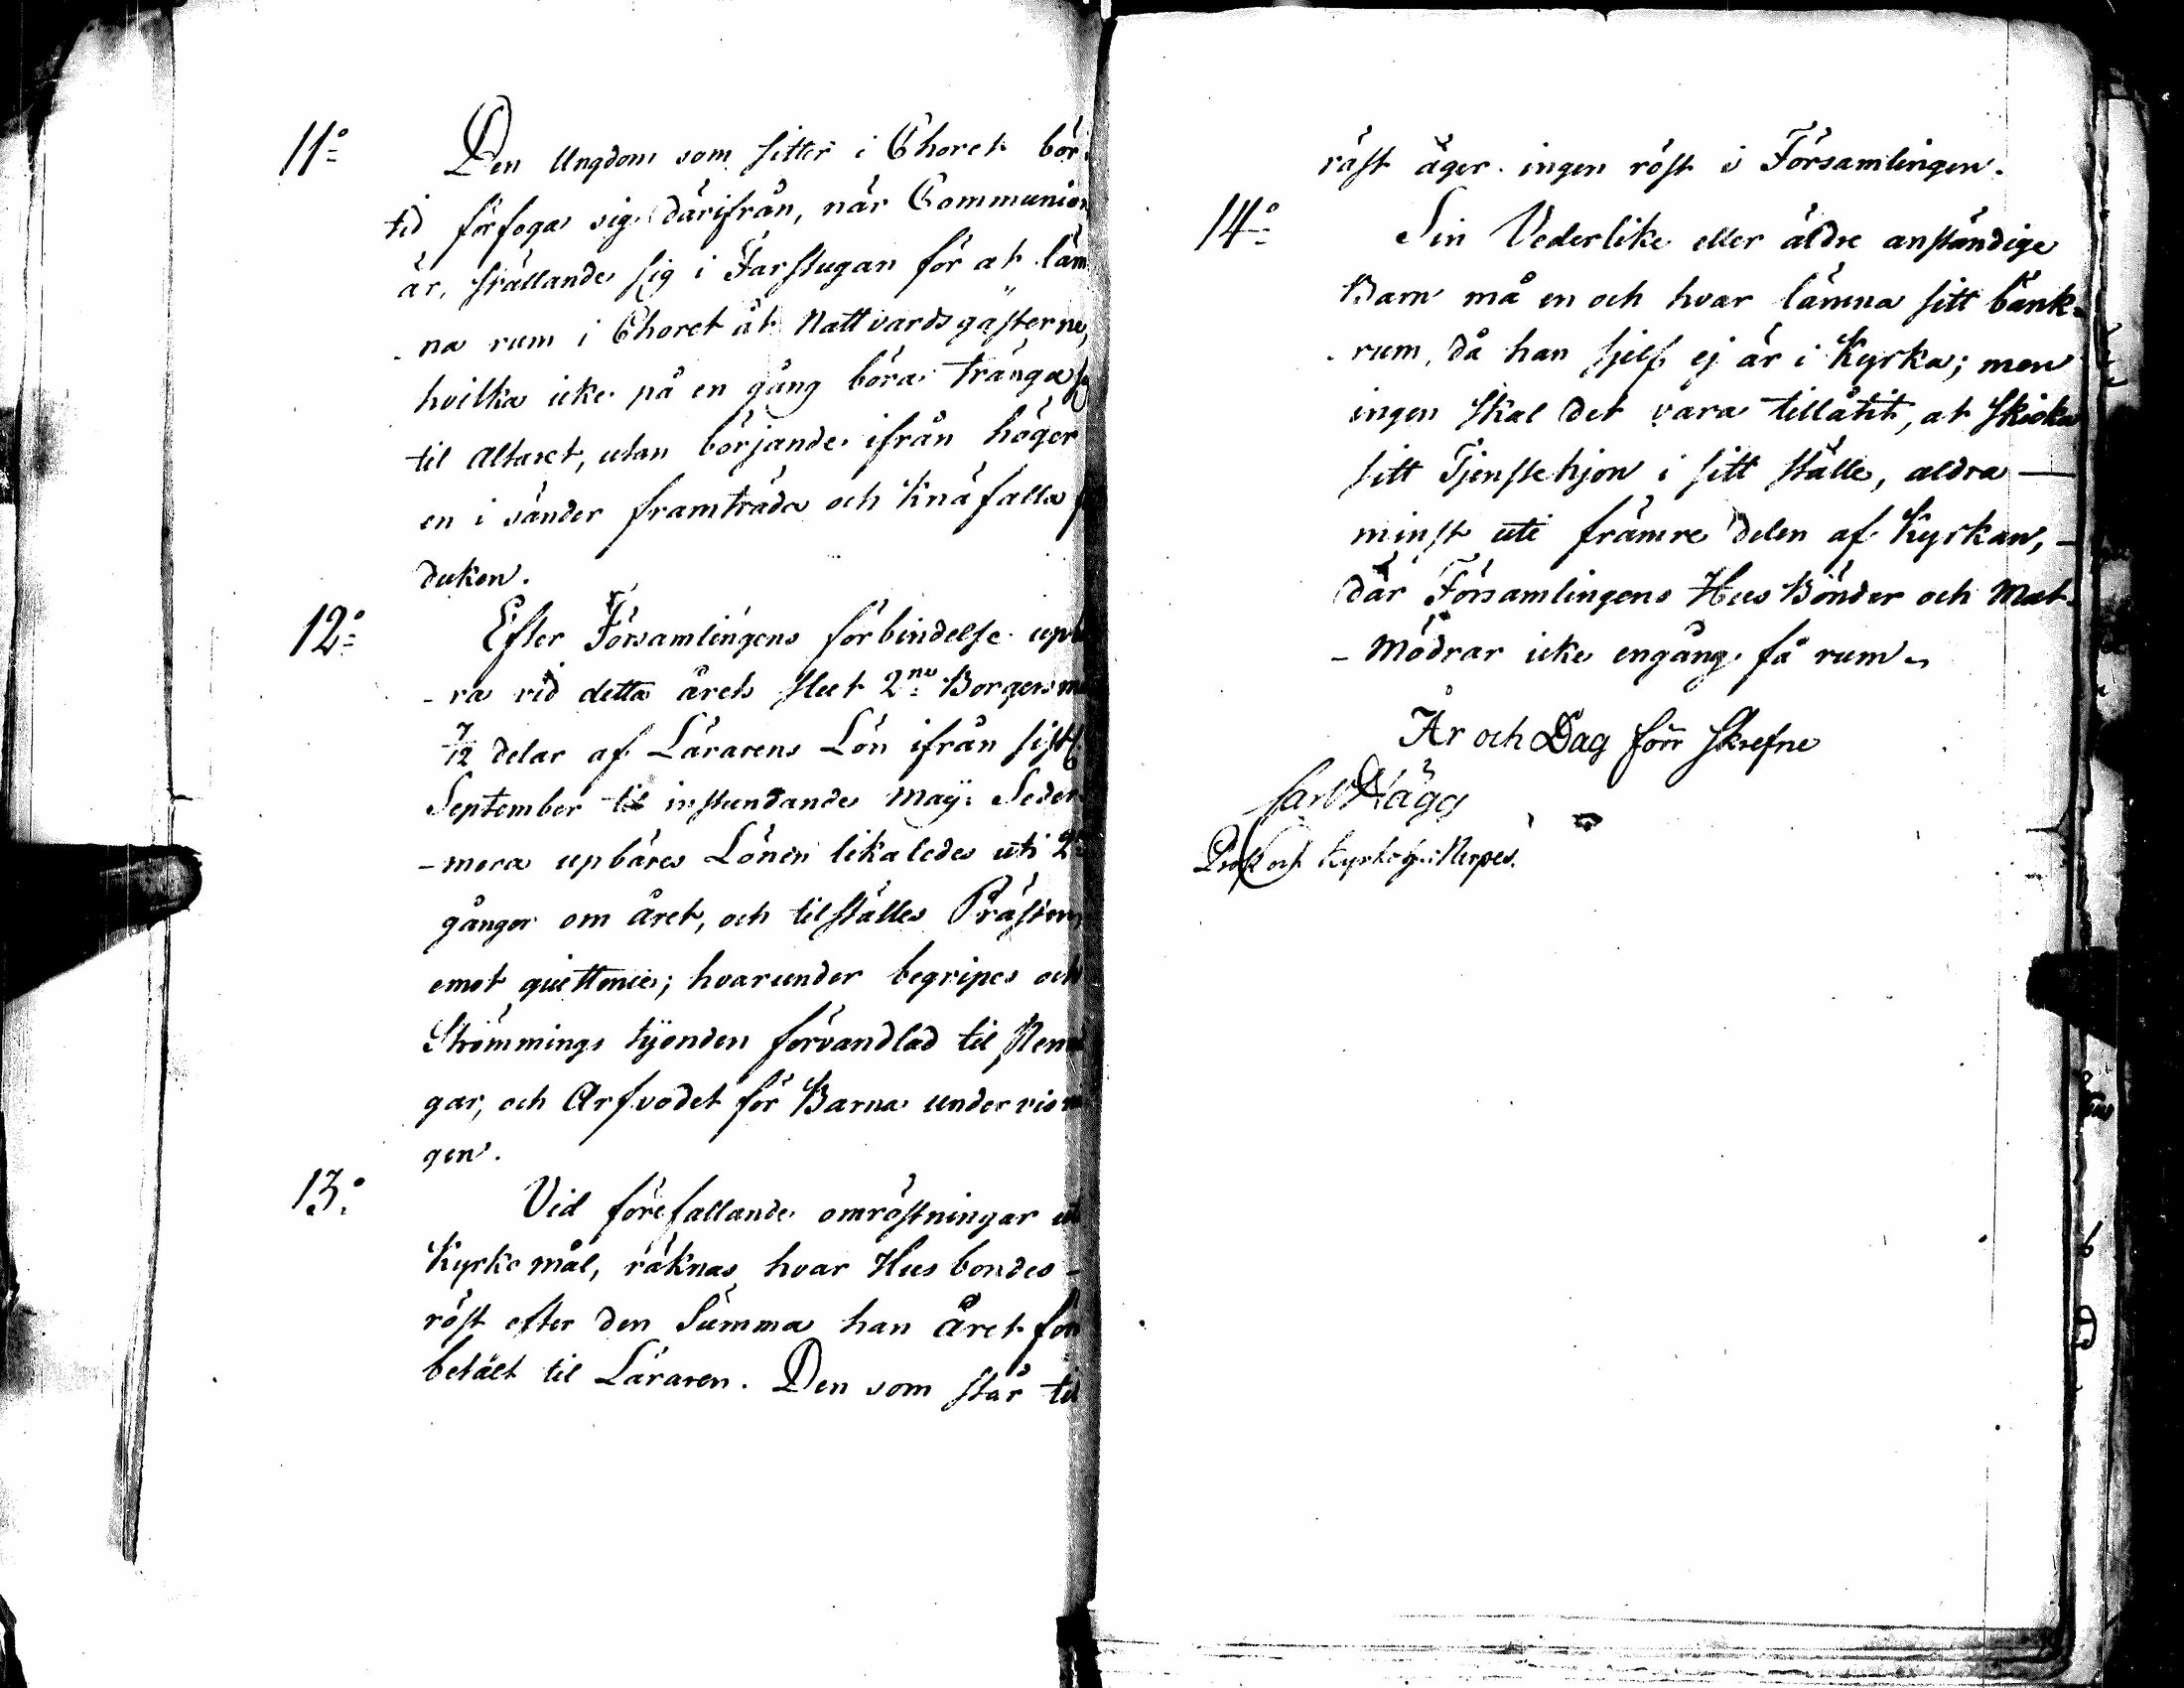 11º Den Ungdom som sitter i Choret bör i
tid förfoga sig därifrån, när Communion
är, ställande sig i Farstugan för at läm
-na rum i Choret åt Nattvardsgästerne,
hvilka icke på en gång böra tränga sig
til Altaret, utan börjande ifrån höger
en i sänder framträda och Knäfalla
duken.
12º Efter Församlingens förbindelse upb
-ra vid detta årets slut 2ne Borgersmä
7/12 delar af Lärarens Lön ifrån sistl.
September til instundande Maÿ. Seder
-mera upbäres Lönen likaledes uti 2ne
gånger om året, och tilställes Prästen
emot quittence; hvarunder begripes och
Strömmings tÿonden förvandlad til Pennin
gar, och Arfvodet för Barna undervisnin
gen.
13. Vid förefallande omröstningar uti
Kyrko mål, räknas hvar Husbondes-
röst efter den Summa han Året för
betält til Läraren. Den som står til
räst äger ingen röst i Församlingen.
14º Sin Vederlike eller äldre anständige
Barn må en och hvar lämna sitt bänk-
-rum, då han sjelf ej är i Kyrka; men
ingen skal det vara tillåtit, at skicka
sitt Tjenstehjon i sitt ställe, aldra-
minst uti främre delen af Kyrkan,-
där Församlingens HusBönder och Mat-
-Mödrar icke engång få rum.
År och Dag förr skrefne
Carl Hägg
Prost och Kyrkoh. i Nerpes.